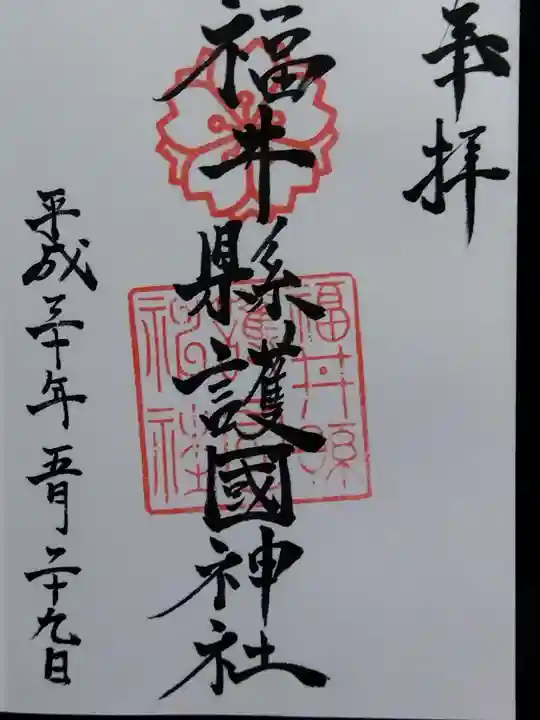 奉拝
福井縣護國神社
福井縣護國神社
平成三十年五月二十九日